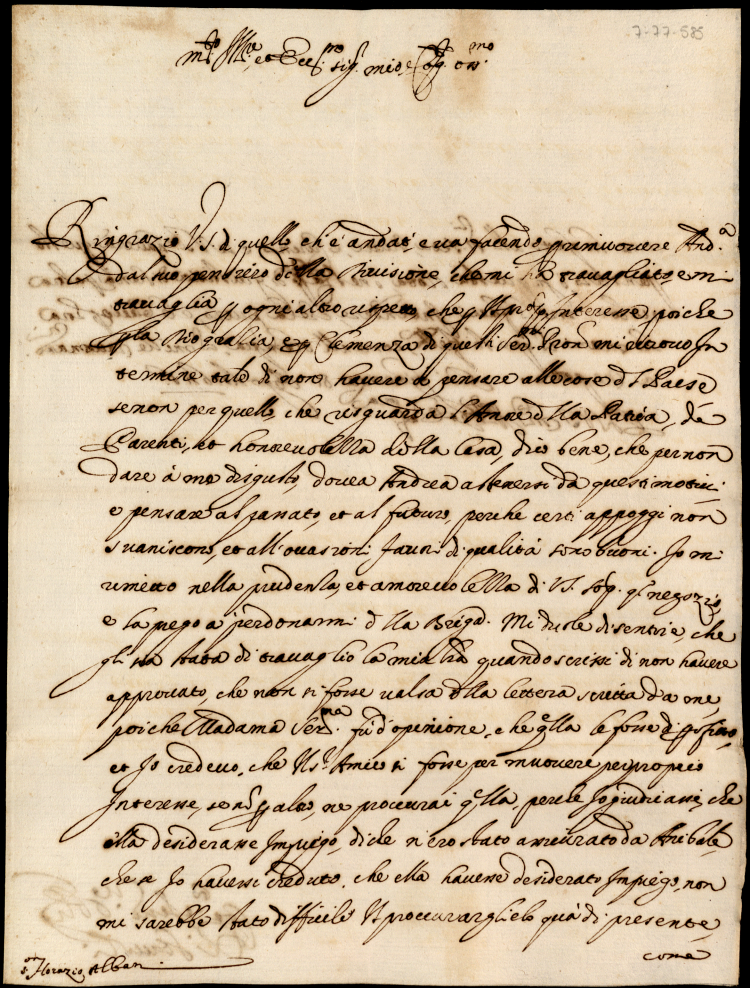 7-77-585
m.to Ill.re et Ecc.mo sig.r mio oss.mo
Ringrazio V.S. di quello, ch'è andat' e va facendo per rimuovere And.a
dal suo pensiero della Divisione, che mi ha travagliato, e mi
travaglia per ogni altro rispetto, che per interesse, poiche
per la Dio grazia, e per Clemenza di questi Ser.mi Pron.i mi ritrovo In
termine tale di non havere a pensare alle cose del Paese
se non per quello, che risguarda l'Amore della Patria, de
Parenti, et honorevolezza della Casa, dico bene, che per non
dare à me disgusto, dovea Andrea astenersi da questi motivi
e pensare al passato, et al futuro, perche certi appoggi non
svaniscono, et all'occasioni sono buoni. Io mi
rimetto nella prudenza, et amorevolezza di V.S. sop.a q.l negozio,
e la prego a perdonarmi della Briga. Mi duole di sentire, che
gli sia stata di travaglio la mia quando scrissi di non havere
approvato, che non si fosse valsa della lettera scritta da me
poiche Madama Ser.ma fù d'opinione, che q.lla le fosse di
et Io credevo, che V.S. Amico si fosse per muovere per proprio
Interesse, se non per altro, ne procurai q.lla, perche Io giudicassi, che
ella desiderasse Impiego, di che n'ero stato assicurato da Anibale
che se Io havessi creduto, che ella havesse desiderato Impiego, non
mi sarebbe stato difficile il procurarglielo quà di presente
come
s.or Horazio Alban